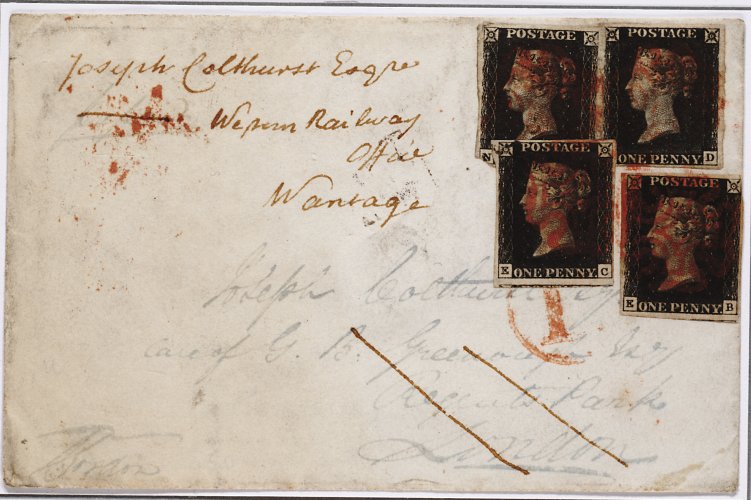 Joseph Colthurst Esqre
Western Railway
Office
Wantage
POSTAGE
N
POSTAGE
ONE PENNY D
K ONE PENNY C
POSTAGE
K ONE PENNY B
1
Joseph Colthurst Esq
care of G. B. Greenough Esq
Regents Park
London